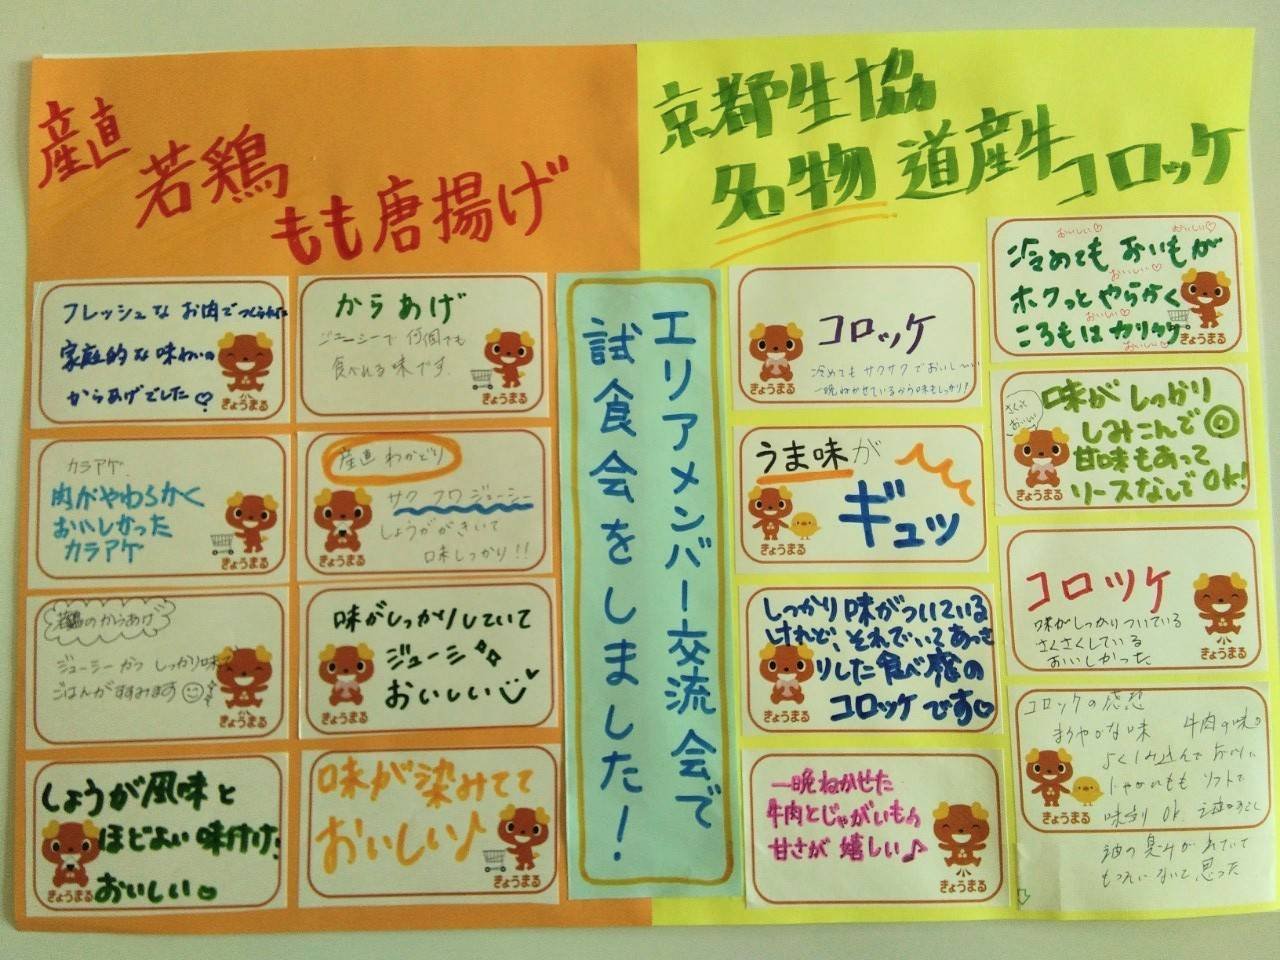 産直
若鶏
もも唐揚げ
フレッシュな お肉でつくられた
家庭的な味わいの
からあげでした♡
きょうまる
からあげ
ジューシーで何個でも
食べれる味です。
きょうまる
カラアゲ
肉がやわらかく
おいしかった
カラアゲ
きょうまる
産直わかどり
サク フワ ジューシー
しょうががきいて
味しっかり!!
きょうまる
若鶏のからあげ
ジューシーかつ しっかり味で
ごはんがすすみます
きょうまる
味がしっかりしていて
ジューシー
おいしい
きょうまる
しょうが風味と
ほどよい味付け。
おいしい
きょうまる
味が染みてて
おいしい♪
きょうまる
エリアメンバー交流会で
試食会をしました!
京都生協
名物 道産牛コロッケ
コロッケ
冷めてもサクサクでおいしーい
一晩ねかせているから味もしっかり!
きょうまる
うま味が
ギュッ
きょうまる
しっかり味がついている
けれど、それでいてあっさ
りした食べ感の
コロッケです♡
きょうまる
一晩ねかせた
牛肉とじゃがいもの
甘さが嬉しい♪
きょうまる
おいしい♡ おいしい♡
冷めても おいもが
おいしい♡
ホクっと やらかく
おいしい♡
ころもは カリッカリ
おいしい♡
きょうまる
さくっと
おいしい
味がしっかり
しみこんで◎
甘味もあって
ソースなしでOK!
きょうまる
コロッケ
味がしっかりついている
さくさくしている
おいしかった
きょうまる
コロッケの感想
まろやかな味 牛肉の味が
よくしみ込んでおいしい
じゃがいもも ソフトで
味付 OK.
きょうまる
油の臭いが
もったいないと思った